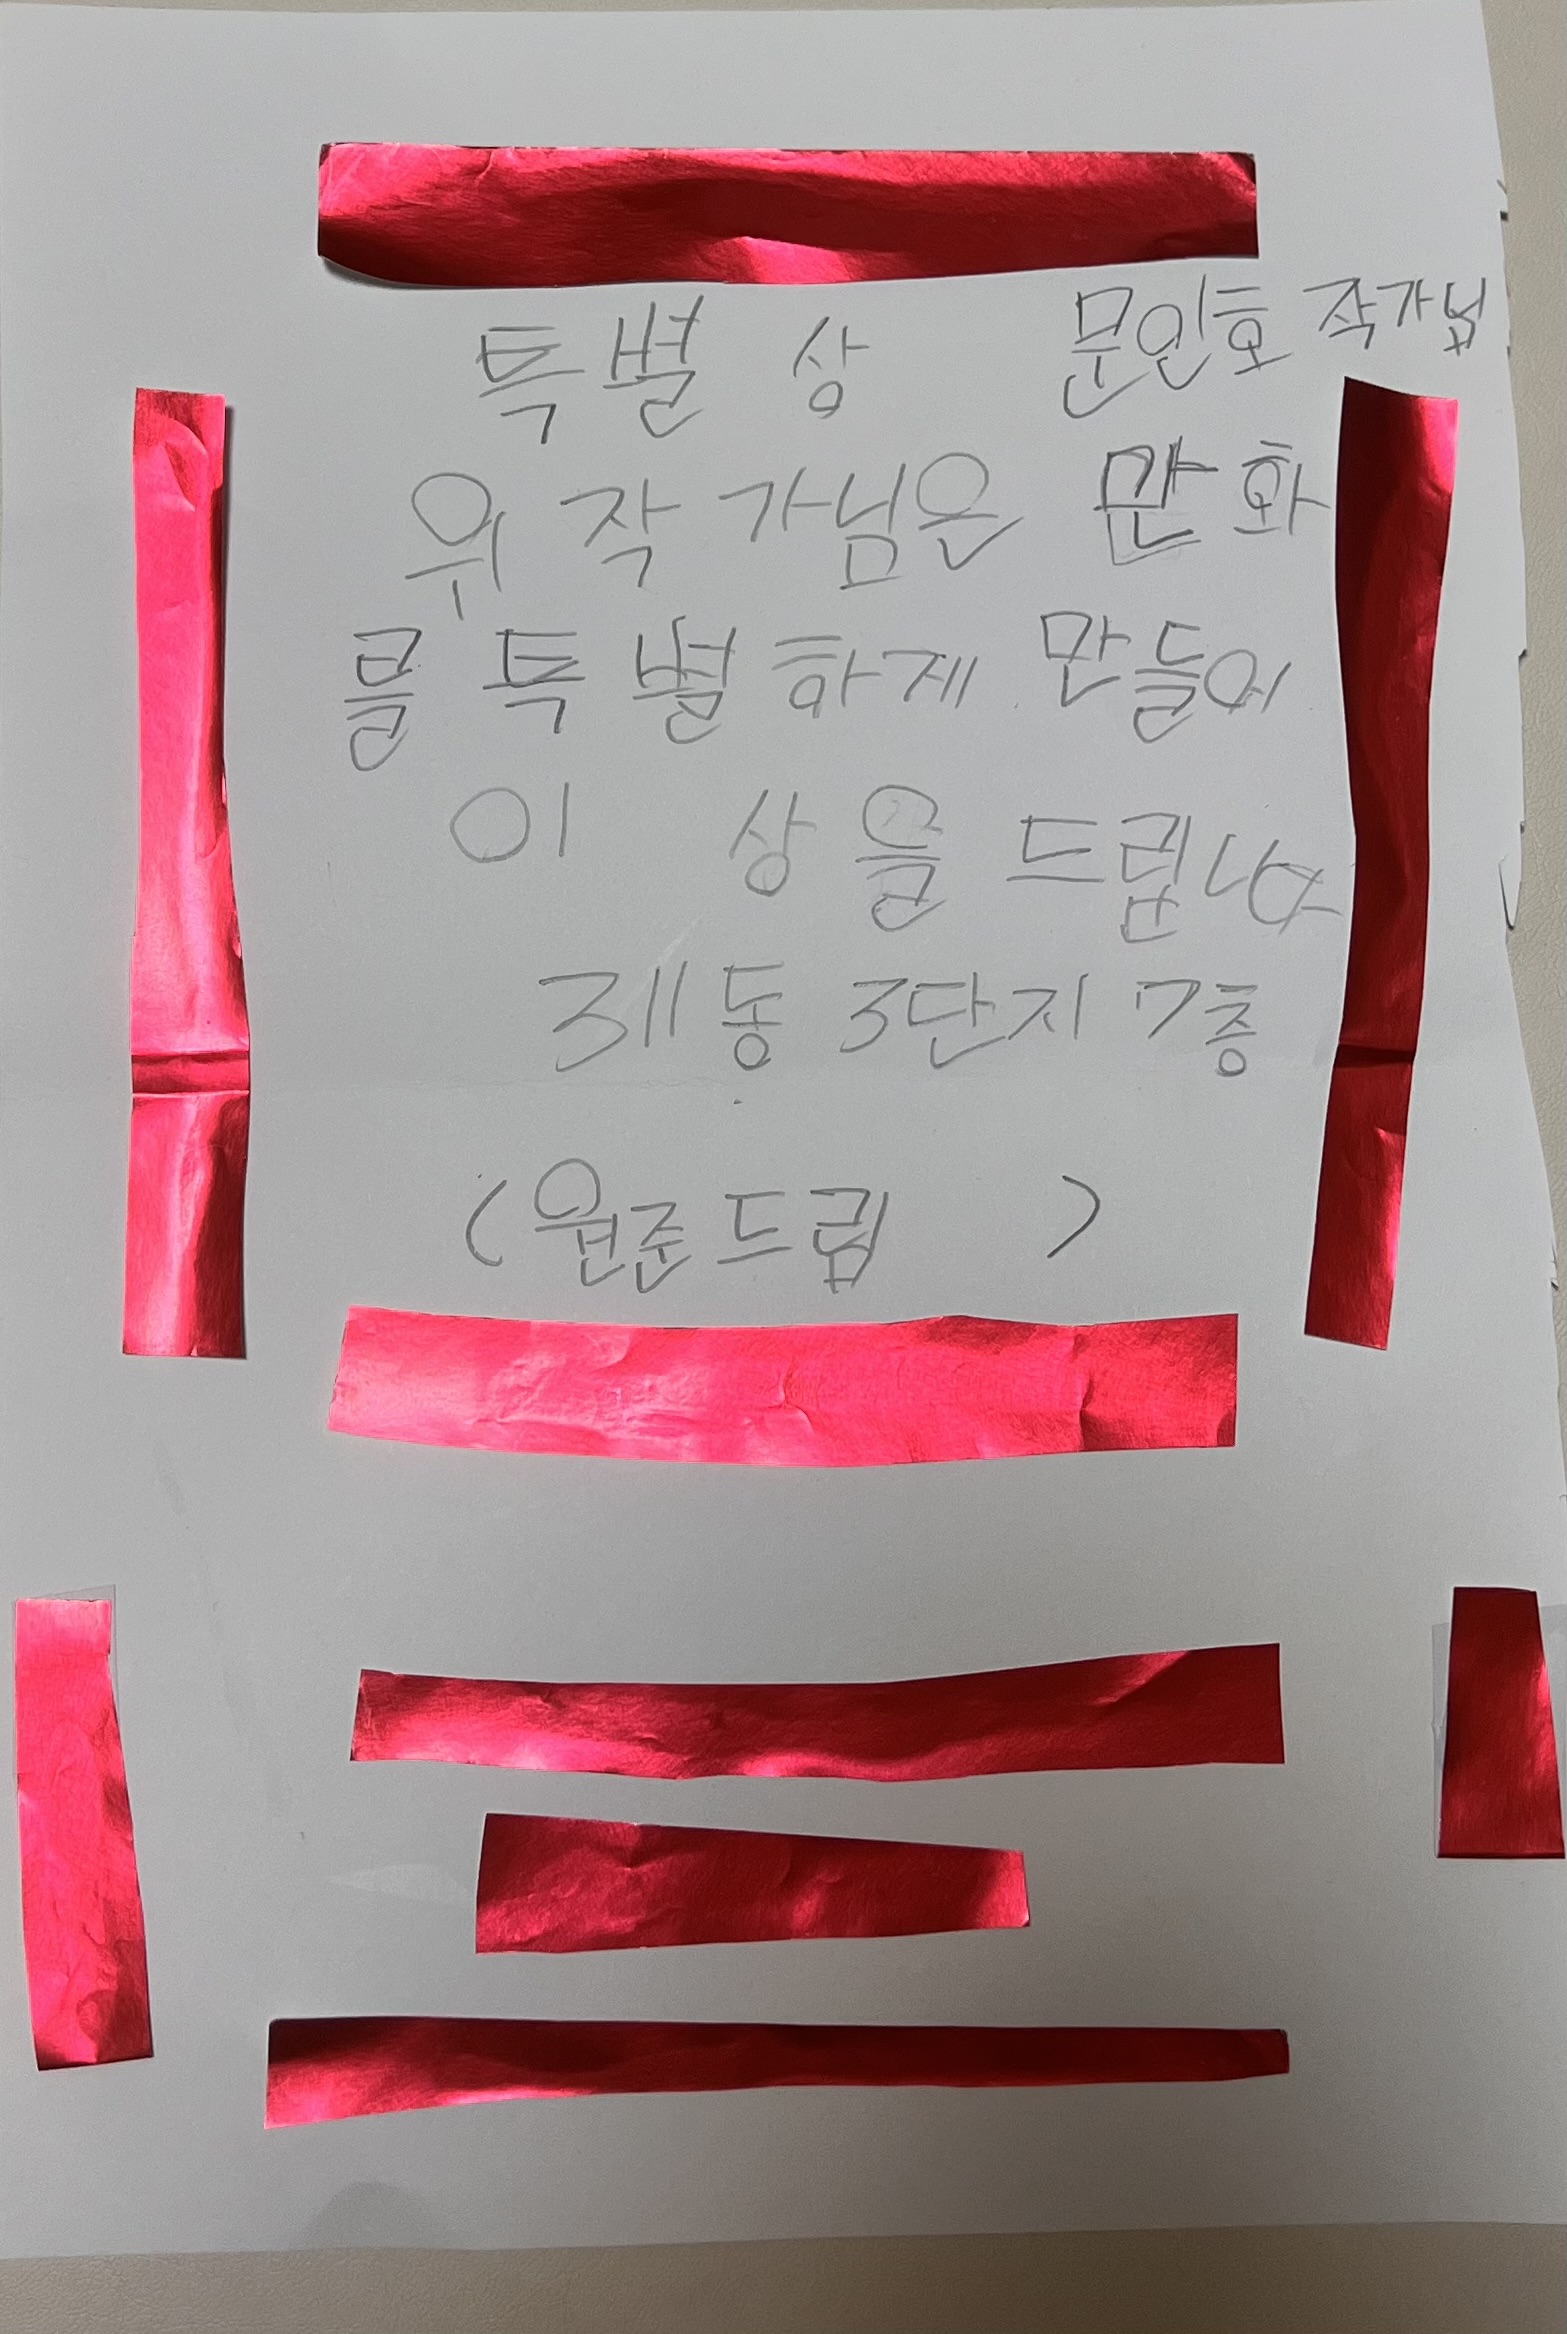 특별 상 문인호 작가님
위 작 가님은 만화
를 특별하게 만들어
이 상을 드립니다
311동 3단지 7층
(원준드림 )